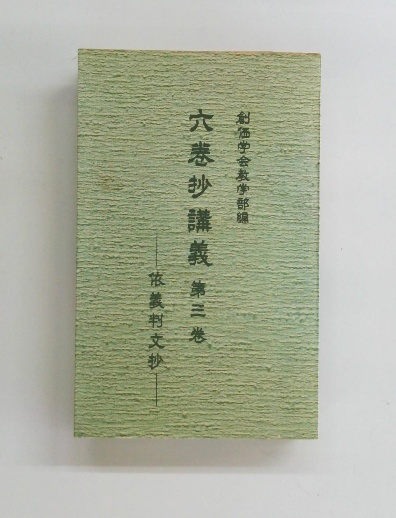 創価学会教学部編
六巻抄講義 第三巻
——依義判文抄——